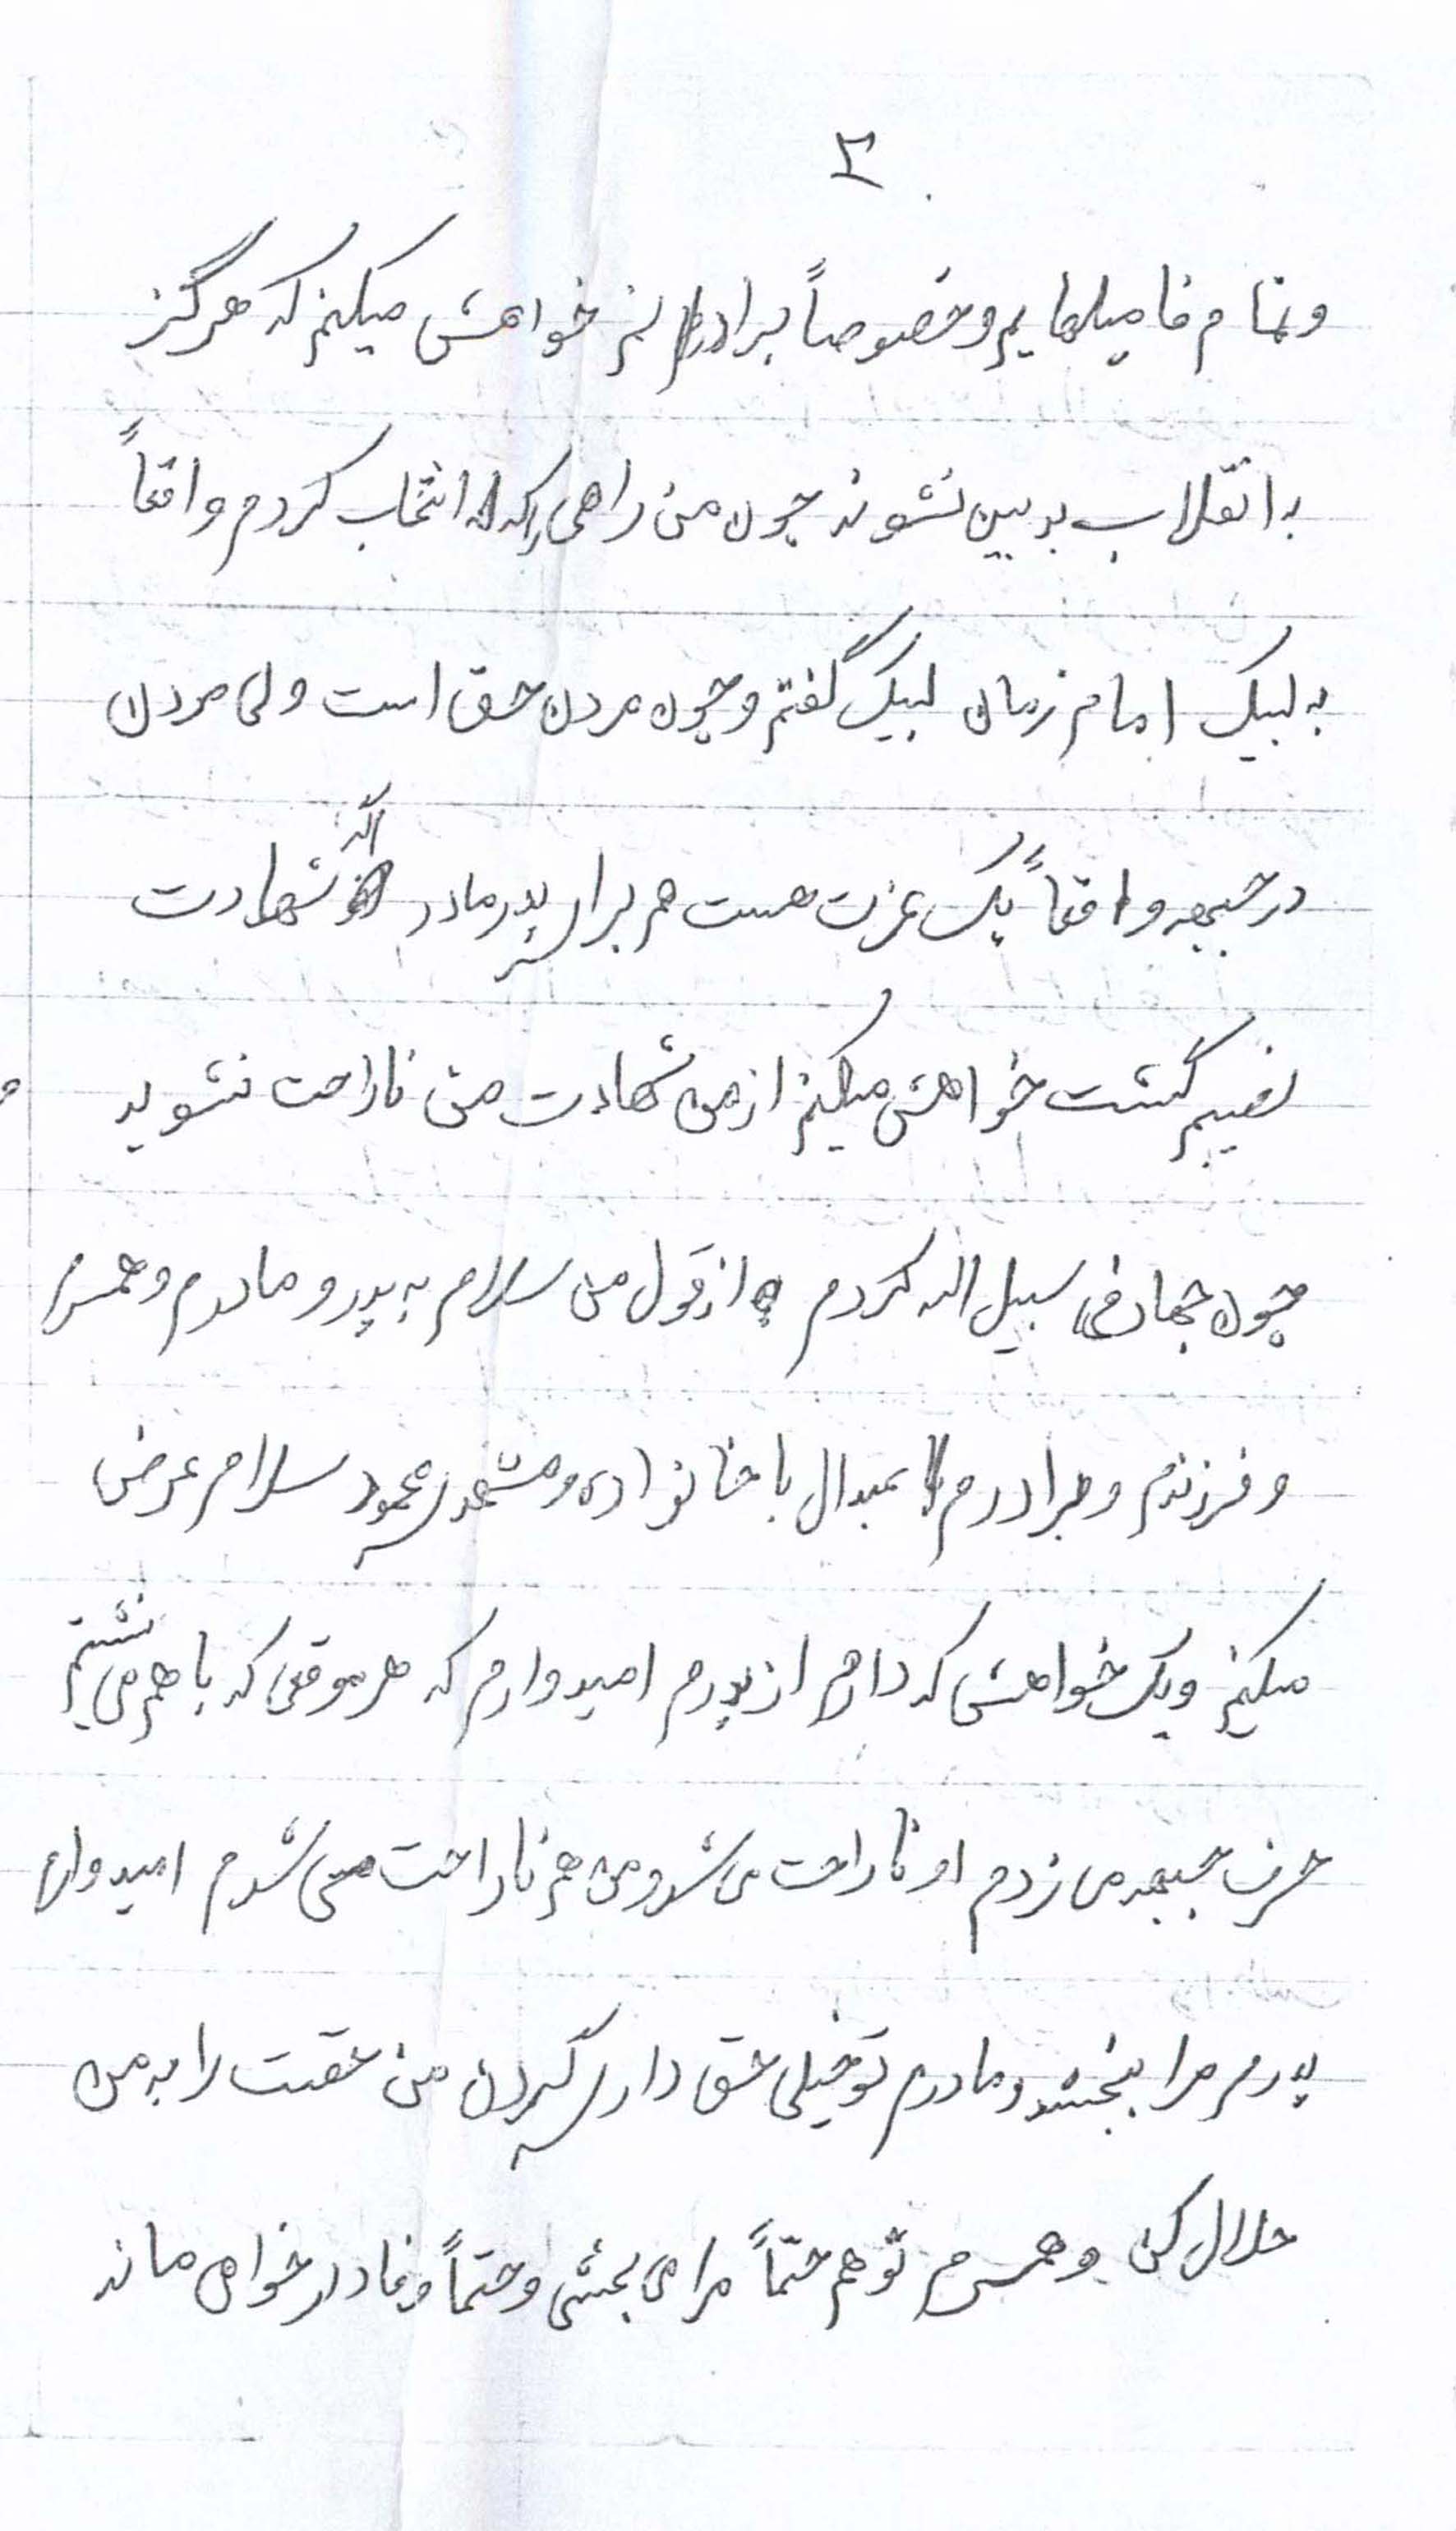 ۲
و تمام فامیلهایم و خصوصاً برادرانم خواهش میکنم که هرگز
به انقلاب بدبین نشوند چون من راهی را که انتخاب کردم واقعاً
به لبیک امام زمان لبیک گفتم و چون مردن حق است ولی مردن
در جبهه واقعاً یک عزت هست هم برای پدر مادر اگر شهادت
نصیبم گشت خواهش میکنم از من شهادت من ناراحت نشوید
چون جهاد فی سبیل الله کردم از قول من سلام به پدر و مادرم و همسرم
و فرزندم و برادرم با خانواده و مشهدی محمود سلام عرض
میکنم و یک خواهشی که دارم از پدرم امیدوارم که هر موقعی که با هم می نشستیم
حرف جبهه می زدم او ناراحت می شد و من هم ناراحت می شدم امیدوارم
پدرم مرا ببخشد و مادرم تو خیلی حق داری گردن من حقت را به من
حلال کن و همسرم تو هم حتماً مرا می بخشی و حتماً وفادار خواهی ماند